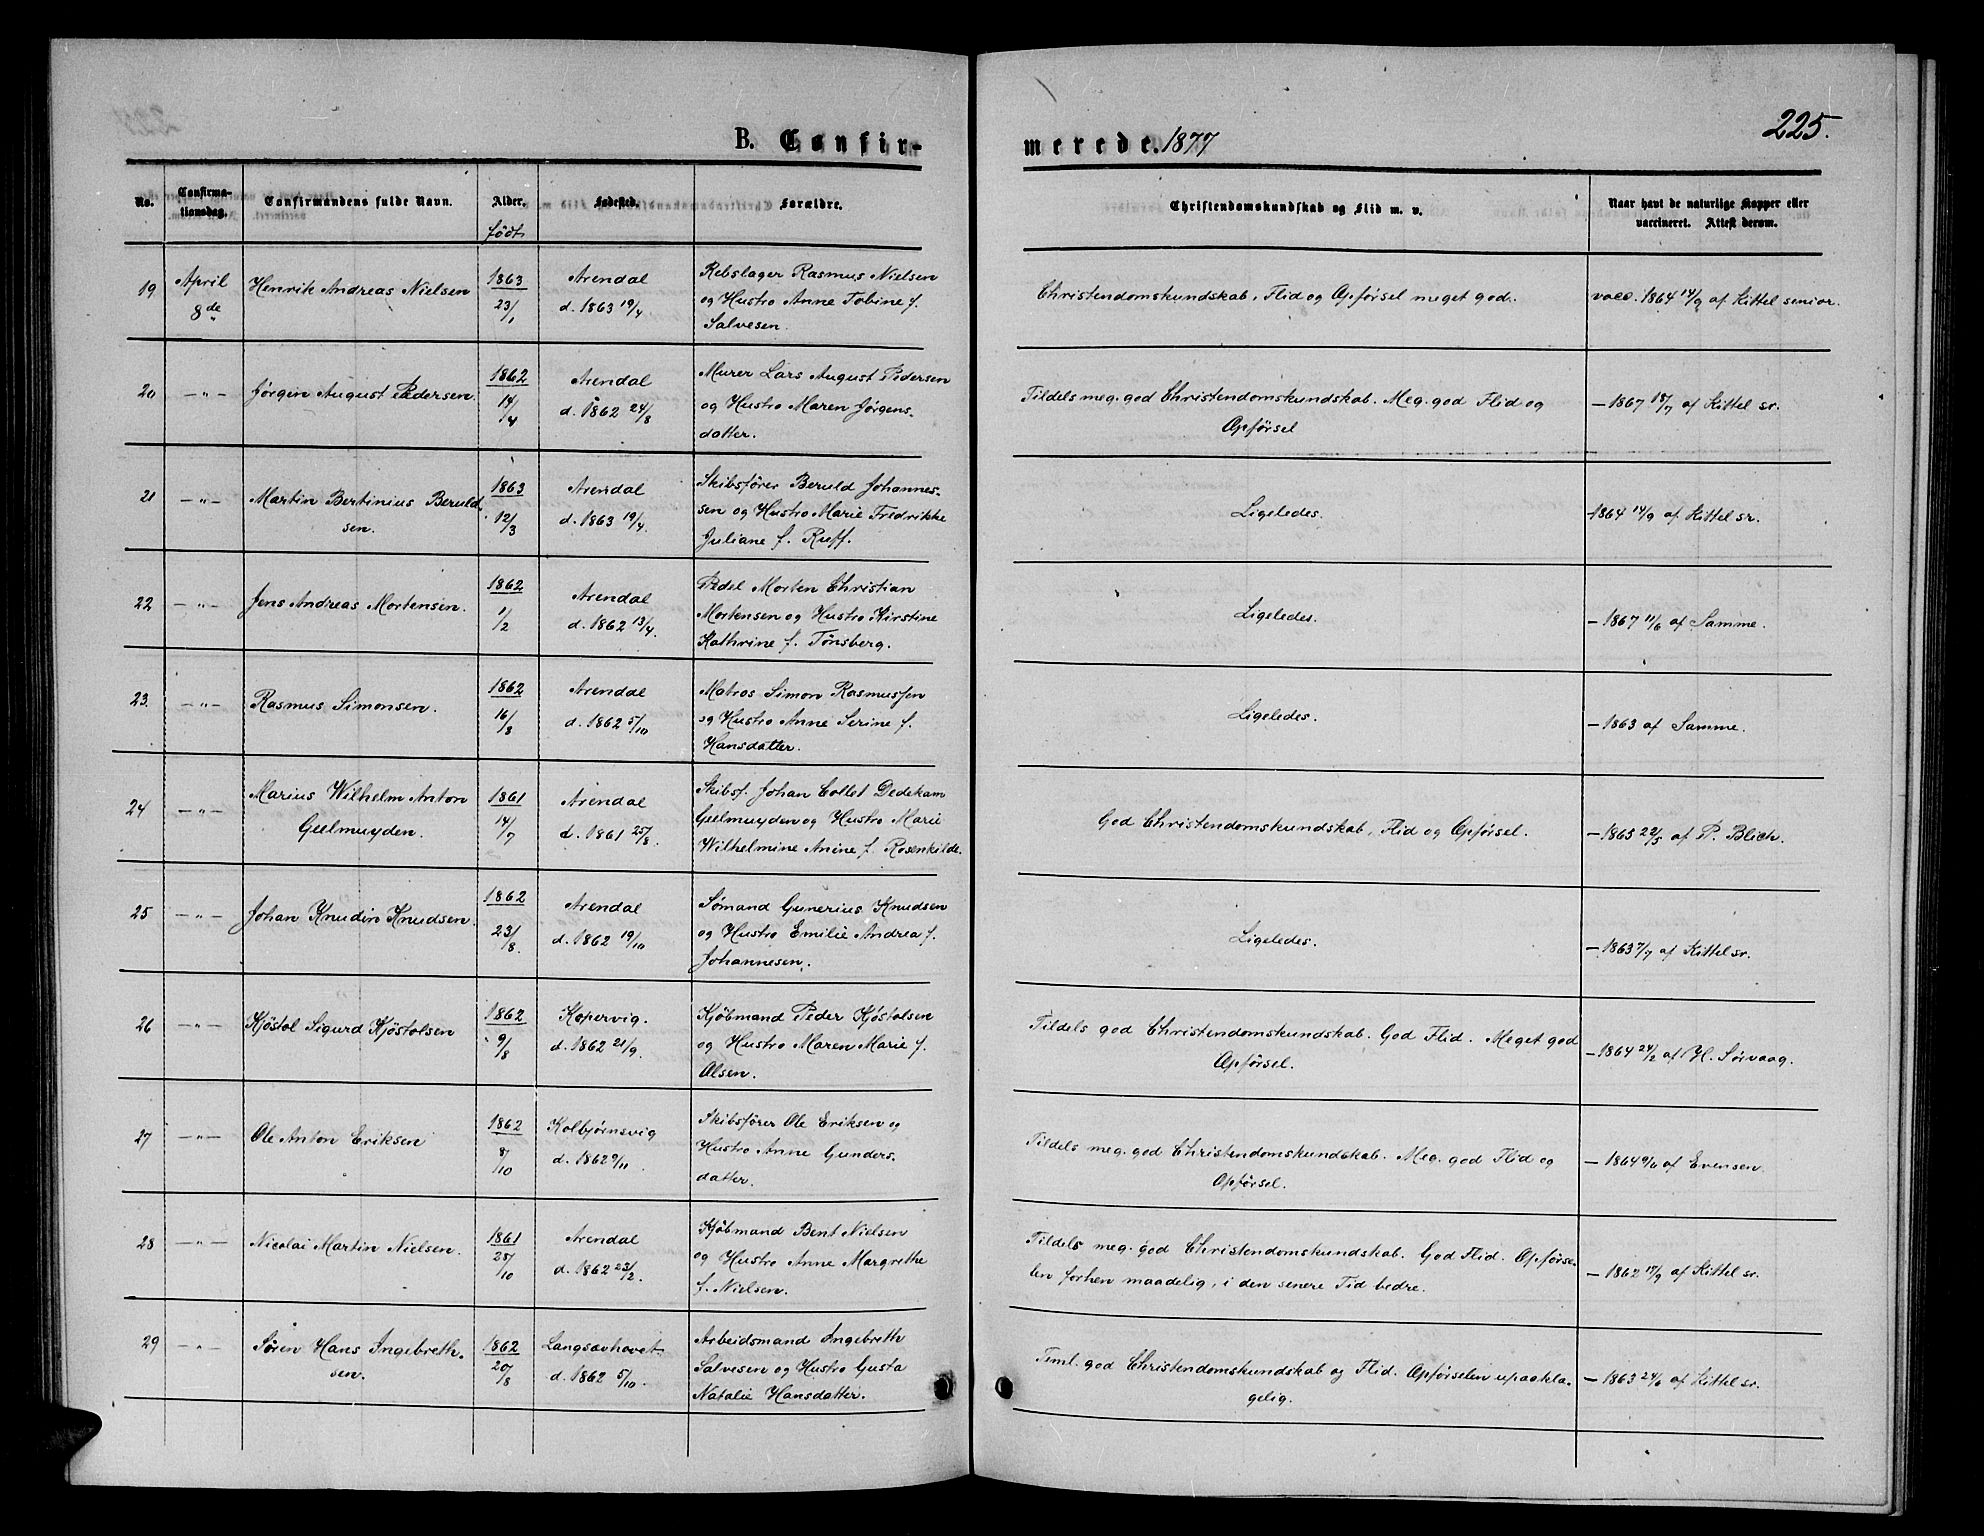 225.
B. Confir-
merede. 1877
No.
Confirma-
tionsdag.
Confirmandens fulde Navn.
Alder.
født
Fødested.
Forældre.
Christendomskundskab og Flid m. v.
Naar havt de naturlige Kopper eller
vaccineret. Attest derom.
19
April
8de
Henrik Andreas Nielsen
1863
23/1
Arendal
d. 1863 19/4
Rebslager Rasmus Nielsen
og Hustro Anne Tobine f.
Salvesen.
Christendomskundskab, Flid og Opførsel meget god.
vacc. 1864 14/9 af Kittel senior.
20
— " —
Jørgen August Pedersen.
1862
14/4
Arendal
d. 1862 24/8
Murer Lars August Pedersen
og Hustro Maren Jørgens-
datter.
Tildels meg. god Christendomskundskab. Meg. god Flid og
Opførsel
— 1867 18/7 af Kittel sr.
21
— " —
Martin Bertinius Beruld-
sen.
1863
12/3
Arendal
d. 1863 19/4.
Skibsfører Beruld Johannes-
sen og Hustro Marie Fredrikke
Juliane f. Ruff.
Ligeledes.
— 1864 14/9 af Kittel sr.
22
— " —
Jens Andreas Mortensen.
1862
1/2
Arendal
d. 1862 13/4.
Pedel Morten Christian
Mortensen og Hustro Kirstine
Kathrine f. Tønsberg.
Ligeledes.
— 1867 11/6 af Samme.
23.
— " —
Rasmus Simonsen.
1862
16/8
Arendal
d. 1862 5/10
Matros Simon Rasmussen
og Hustro Anne Serine f.
Hansdatter.
Ligeledes.
— 1863 af Samme.
24
— " —
Marius Wilhelm Anton
Geelmuyden.
1861
14/7
Arendal
d. 1861 25/8.
Skibsf. Johan Collet Dedekam
Geelmuyden og Hustro Marie
Wilhelmine Anine f. Rosenkilde.
God Christendomskundskab, Flid og Opførsel.
— 1863 22/5 af P. Blich.
25
— " —
Johan Knudin Knudsen
1862
23/8.
Arendal
d. 1862 19/10
Sømand Gunerius Knudsen
og Hustro Emilie Andrea f.
Johannesen.
Ligeledes.
— 1863 7/7 af Kittel sr.
26
— " —
Kjøstol Sigurd Kjøstolsen
1862
9/8
Kopervig.
d. 1862 21/9.
Kjøbmand Peder Kjøstolsen
og Hustro Maren Marie f.
Olsen.
Tildels god Christendomskundskab. God Flid. Meget god
Opførsel.
— 1864 24/2 af H. Sørvaag.
27
— " —
Ole Anton Eriksen
1862
8/10
Kolbjørnsvig
d. 1862 9/11
Skibsfører Ole Eriksen og
Hustro Anne Gunders-
datter.
Tildels meg. god Christendomskundskab. Meg. god Flid og
Opførsel.
— 1864 9/6 af Evensen.
28
— " —
Nicolai Martin Nielsen.
1861
25/10
Arendal
d. 1862 23/2.
Kjøbmand Bent Nielsen
og Hustro Anne Margrethe
f. Nielsen.
Tildels meg. god Christendomskundskab. God Flid. Opførse-
len forhen maadelig, i den senere Tid bedre.
— 1862 17/9 af Kittel sr.
29
— " —
Søren Hans Ingebreth-
sen.
1862
20/8
Langsævhovet
d. 1862 5/10.
Arbeidsmand Ingebreth
Salvesen og Hustro Gusta
Natalie Hansdatter.
Teml. god Christendomskundskab og Flid. Opførselen upaakla-
gelig.
— 1863 24/6 af Kittel sr.